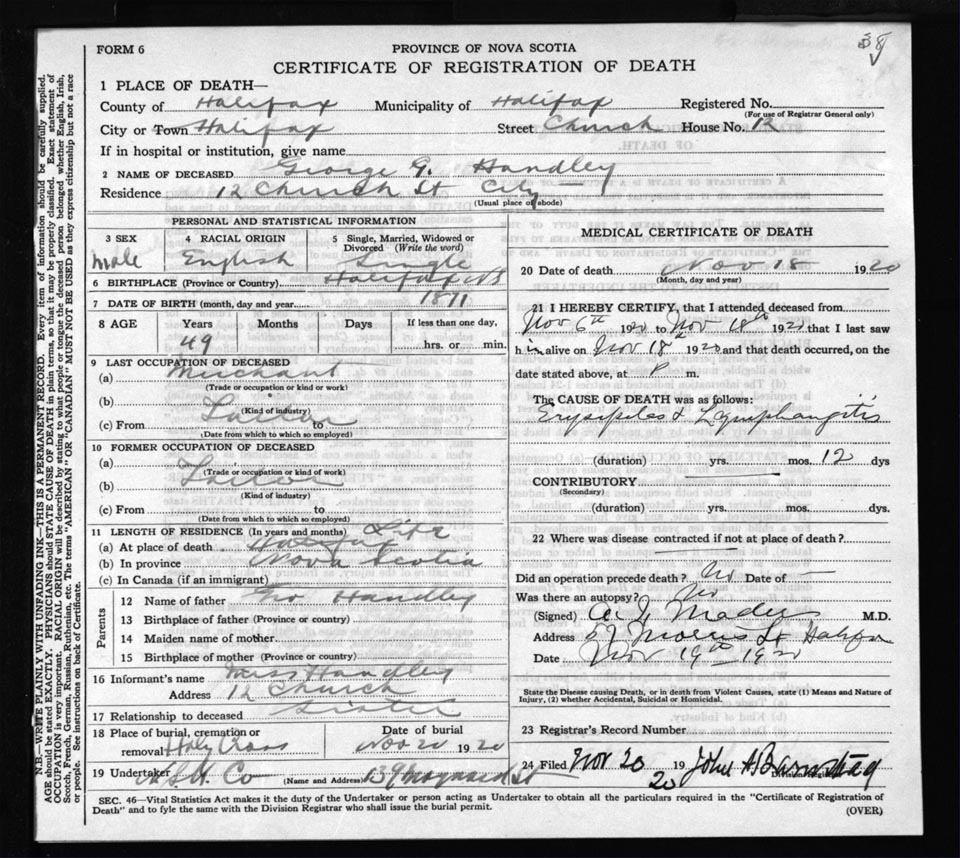 FORM 6
PROVINCE OF NOVA SCOTIA
CERTIFICATE OF REGISTRATION OF DEATH
1 PLACE OF DEATH—
County of Halifax Municipality of Halifax Registered No.
(For use of Registrar General only)
City or Town Halifax Street Church House No. 12
If in hospital or institution, give name
2 NAME OF DECEASED George G. Handley
Residence 12 Church St City
(Usual place of abode)
PERSONAL AND STATISTICAL INFORMATION
3 SEX
Male
4 RACIAL ORIGIN
English
5 Single, Married, Widowed or Divorced (Write the word)
Single
6 BIRTHPLACE (Province or Country) Halifax NS
7 DATE OF BIRTH (month, day and year) 1871
8 AGE Years Months Days If less than one day,
49 hrs. or min.
9 LAST OCCUPATION OF DECEASED
(a) Merchant
(Trade or occupation or kind or work)
(b) Tailor
(Kind of industry)
(c) From to
(Date from which to which so employed)
10 FORMER OCCUPATION OF DECEASED
(a)
(Trade or occupation or kind of work)
(b) Tailor
(Kind of industry)
(c) From to
(Date from which to which so employed)
11 LENGTH OF RESIDENCE (In years and months) Life
(a) At place of death Halifax
(b) In province Nova Scotia
(c) In Canada (if an immigrant)
Parents
12 Name of father Geo Handley
13 Birthplace of father (Province or country)
14 Maiden name of mother
15 Birthplace of mother (Province or country)
16 Informant's name Miss Handley
Address 12 Church
17 Relationship to deceased Sister
18 Place of burial, cremation or removal Holy Cross
Date of burial Nov 20 1920
19 Undertaker Co (Name and Address) 139 Maynard St
MEDICAL CERTIFICATE OF DEATH
20 Date of death Nov 18 1920
(Month, day and year)
21 I HEREBY CERTIFY, that I attended deceased from
Nov 6th 1920 to Nov 18th 1920 that I last saw
him alive on Nov 18th 1920 and that death occurred, on the
date stated above, at P m.
The CAUSE OF DEATH was as follows:
Erysipelas & Lymphangitis
(duration) yrs. mos. 12 dys
CONTRIBUTORY
(Secondary)
(duration) yrs. mos. dys.
22 Where was disease contracted if not at place of death?
Did an operation precede death? No Date of —
Was there an autopsy? No
(Signed) Mader M.D.
Address Morris St Halifax
Date Nov 19th 1920
State the Disease causing Death, or in death from Violent Causes, state (1) Means and Nature of
Injury, (2) whether Accidental, Suicidal or Homicidal.
23 Registrar's Record Number
24 Filed Nov 20 19 20 John A Barnstead
Division Registrar
SEC. 46—Vital Statistics Act makes it the duty of the Undertaker or person acting as Undertaker to obtain all the particulars required in the "Certificate of Registration of
Death" and to fyle the same with the Division Registrar who shall issue the burial permit.
(OVER)
N.B.—WRITE PLAINLY WITH UNFADING INK—THIS IS A PERMANENT RECORD. Every item of information should be carefully supplied.
AGE should be stated EXACTLY. PHYSICIANS should STATE CAUSE OF DEATH in plain terms, so that it may be properly classified. Exact statement of
OCCUPATION is very important. RACIAL ORIGIN will be described by stating to what people or tongue the deceased person belonged whether English, Irish,
Scotch, French, German, Russian, Ruthenian, etc. The terms "AMERICAN" OR "CANADIAN" MUST NOT BE USED as they express citizenship but not a race
or people. See instructions on back of Certificate.